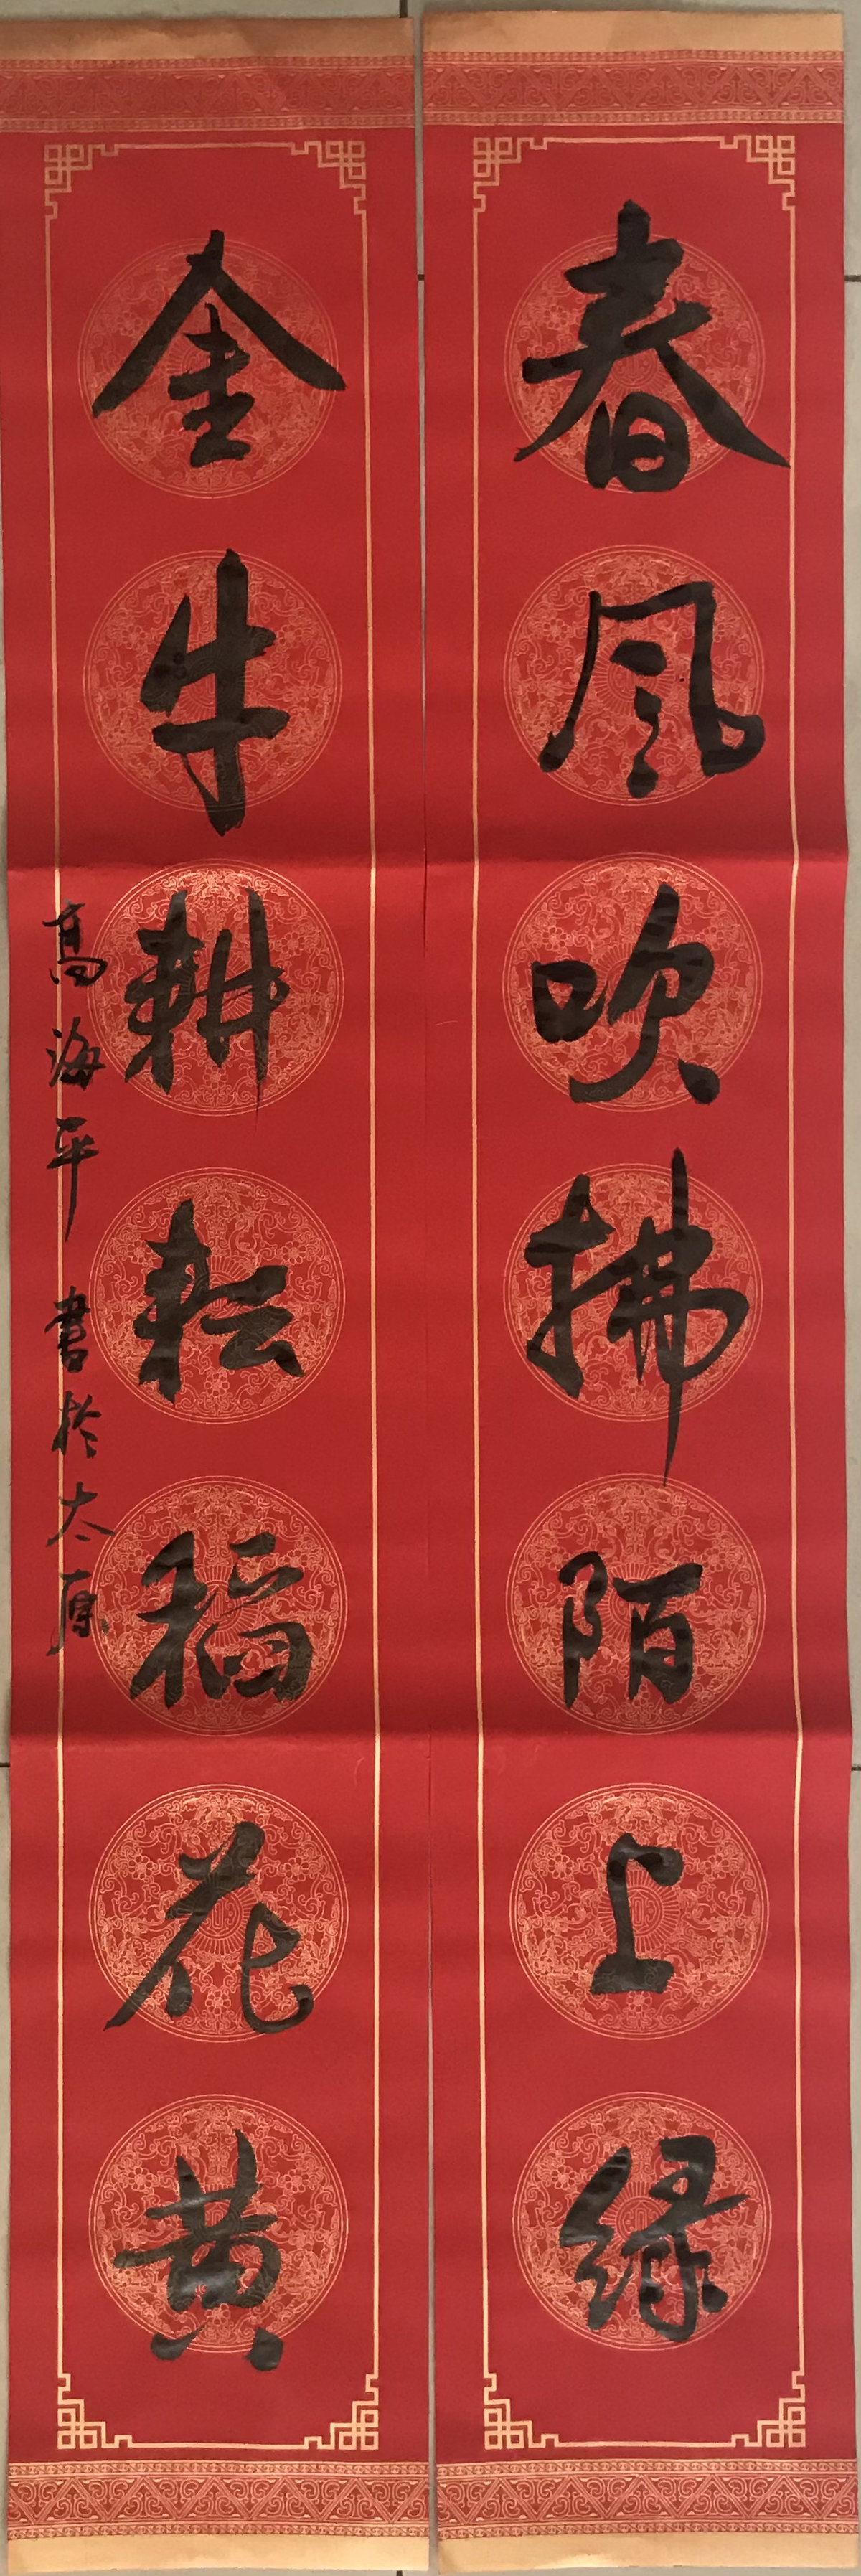 春风吹拂陌上绿
金牛耕耘稻花黄
高海平书於太原